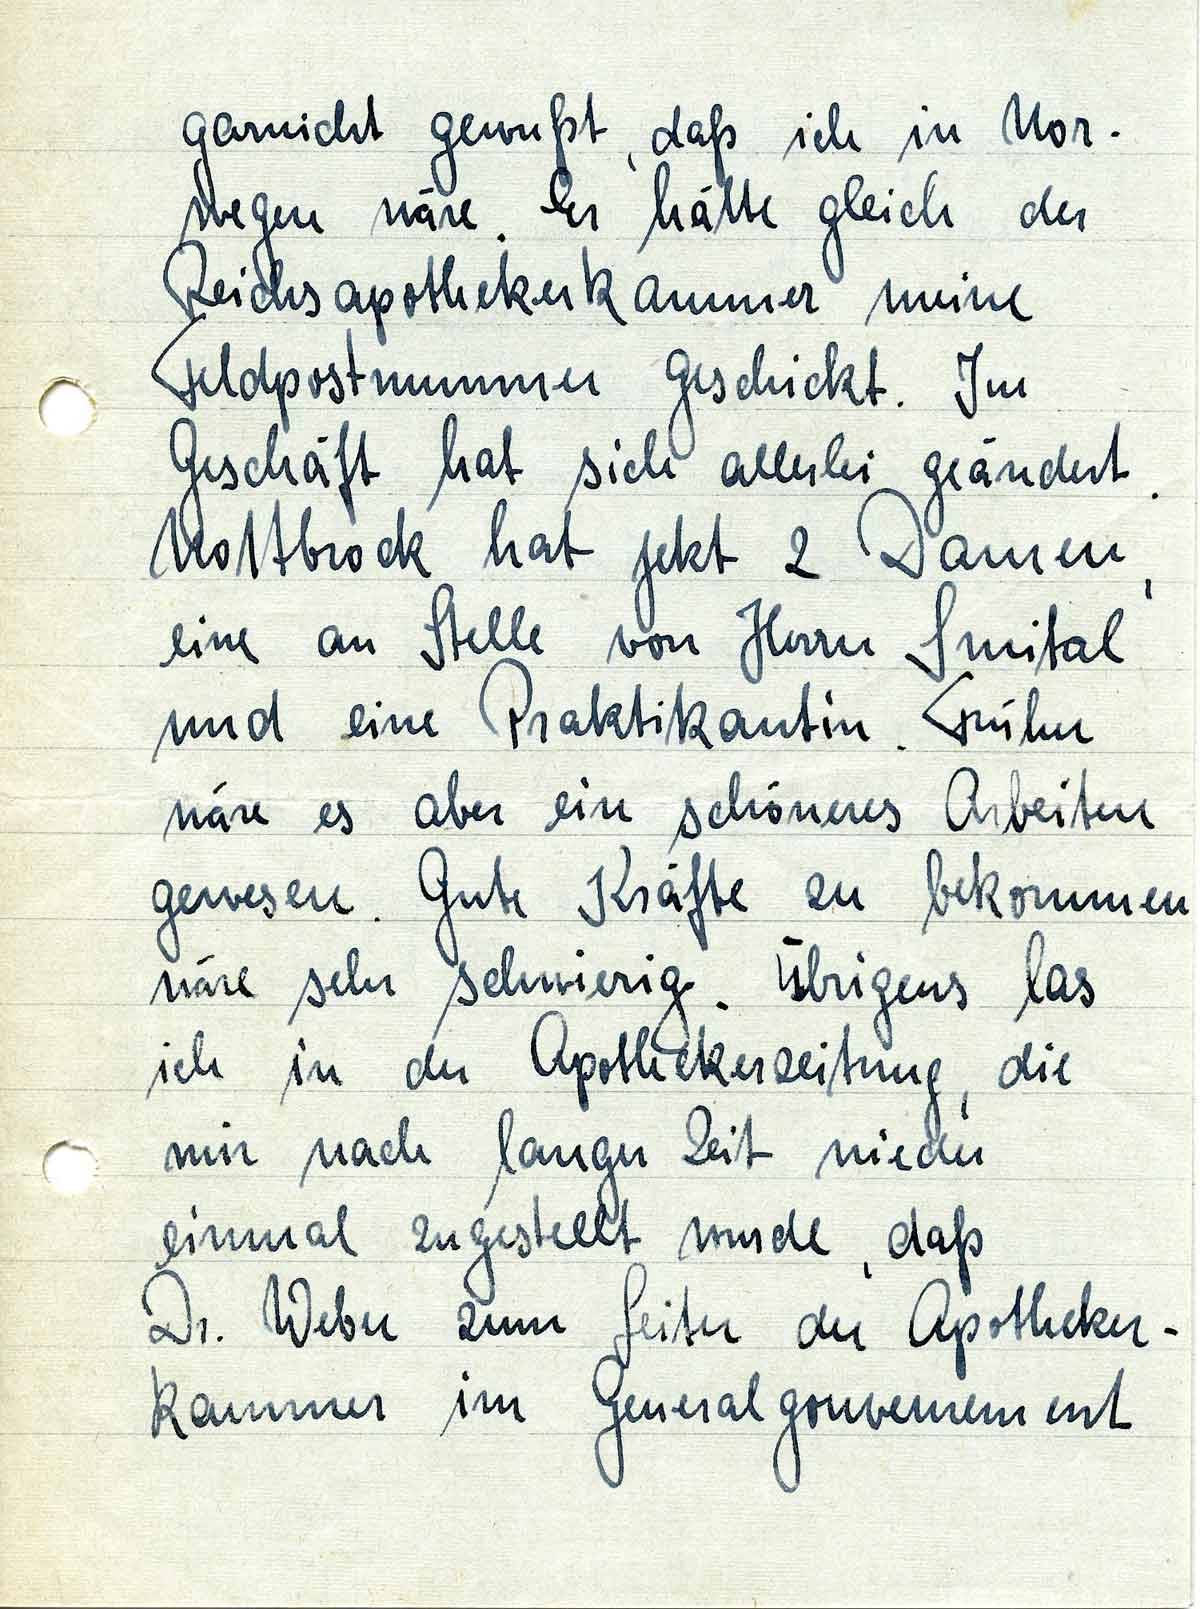 garnicht gewußt, daß ich in Nor-
wegen wäre. Er hätte gleich der
Reichsapothekerkammer meine
Feldpostnummer geschickt. Im
Geschäft hat sich allerlei geändert.
Nottbrock hat jetzt 2 Damen,
eine an Stelle von Herrn Smital
und eine Praktikantin. Früher
wäre es aber ein schöneres Arbeiten
gewesen. Gute Kräfte zu bekommen
wäre sehr schwierig. Übrigens las
ich in der Apothekerzeitung, die
mir nach langer Zeit wieder
einmal zugestellt wurde, daß
Dr. Weber zum Leiter der Apotheker-
kammer im Generalgouvernement